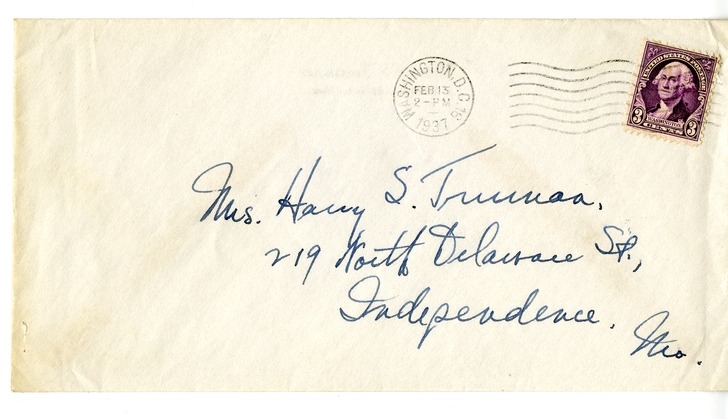 WASHINGTON, D.C.
FEB 13
2-PM
1937
UNITED STATES POSTAGE
3 WASHINGTON 3
Mrs. Harry S. Truman,
219 North Delaware St.,
Independence.
Mo.